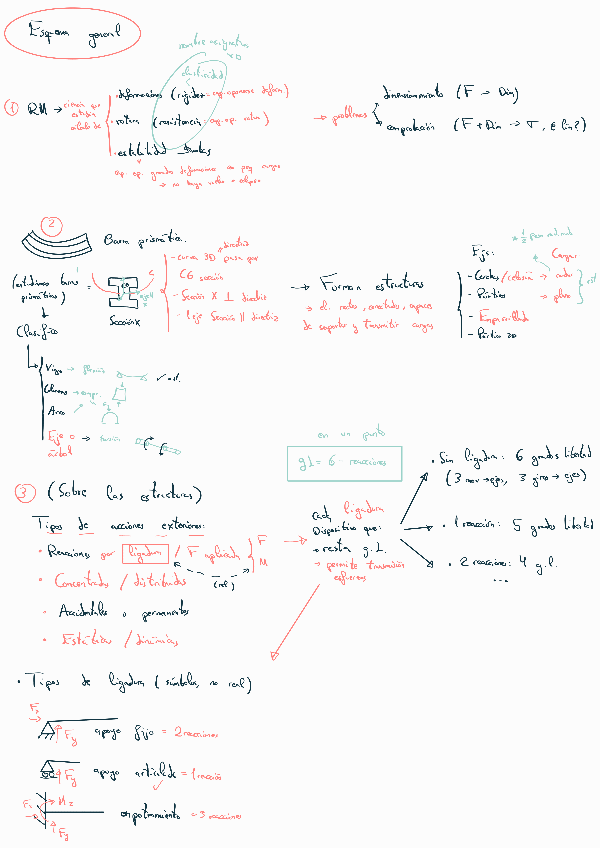 Esquema general
nombre asignatura
xD
elasticidad
① RM → ciencia que estudia cálculo de
· deformaciones (rigidez = cap. oponerse deform)
· rotura (resistencia = cap. op. rotura)
· estabilidad
cap. op. grandes deformaciones con peq. cargas
→ no haya vuelco o colapso
→ problemas
dimensionamiento (F → Dim)
comprobación (F + Dim → σ, ε lim?)
②
Barra prismática.
(estudiamos barras prismáticas) =
CG
eje X
Sección X
directriz
- curva 3D pasa por CG sección
- Sección X ⊥ directriz
- 1 eje Sección || directriz
→ Forman estructuras
→ el. reales, conectados, capaces
de soportar y transmitir cargas
Ejs:
Cargas
- Cerchas / celosía → nudos
- Pórticos → plano
- Emparrillado
- Pórtico 3D
Clasific
Viga → flexión
Columna → compr.
Arco
Eje o árbol → torsión
③ (Sobre las estructuras)
en un punto
gl = 6 - reacciones
Tipos de acciones exteriores:
· Reacciones por ligadura / F aplicada
F
M
(ref)
· Concentradas / distribuidas
· Accidentales o permanentes
· Estáticas / dinámicas
cada ligadura
Dispositivo que:
→ resta g.L.
→ permite transmisión esfuerzos
· Sin ligadura: 6 grados libertad
(3 mov → ejes, 3 giros → ejes)
· 1 reacción: 5 grados libertad
· 2 reacciones: 4 g.l.
...
· Tipos de ligadura (símbolos, no real)
Fx
Fy apoyo fijo = 2 reacciones
Fy apoyo articulado = 1 reacción
Fx
Mz
Fy
empotramiento = 3 reacciones